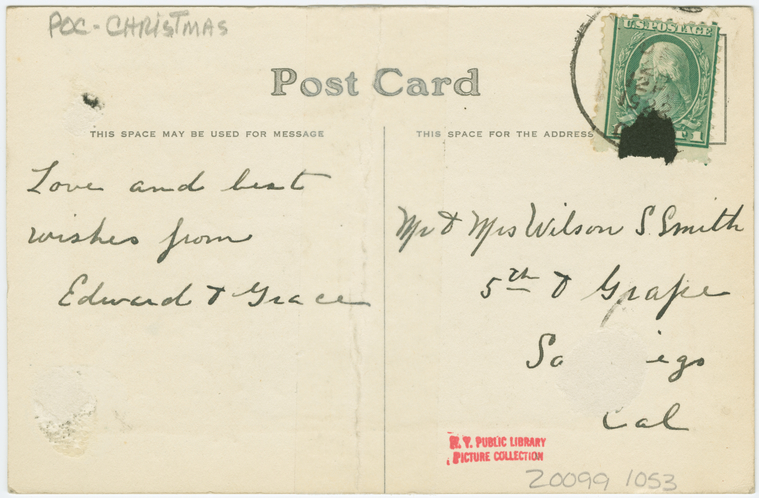 POC-CHRISTMAS
U.S. POSTAGE
1
Post Card
THIS SPACE MAY BE USED FOR MESSAGE
THIS SPACE FOR THE ADDRESS
Love and best
wishes from
Edward & Grace
Mr & Mrs Wilson S. Smith
5th & Grape
Sa iego
Cal
N. Y. PUBLIC LIBRARY
PICTURE COLLECTION
20099 1053